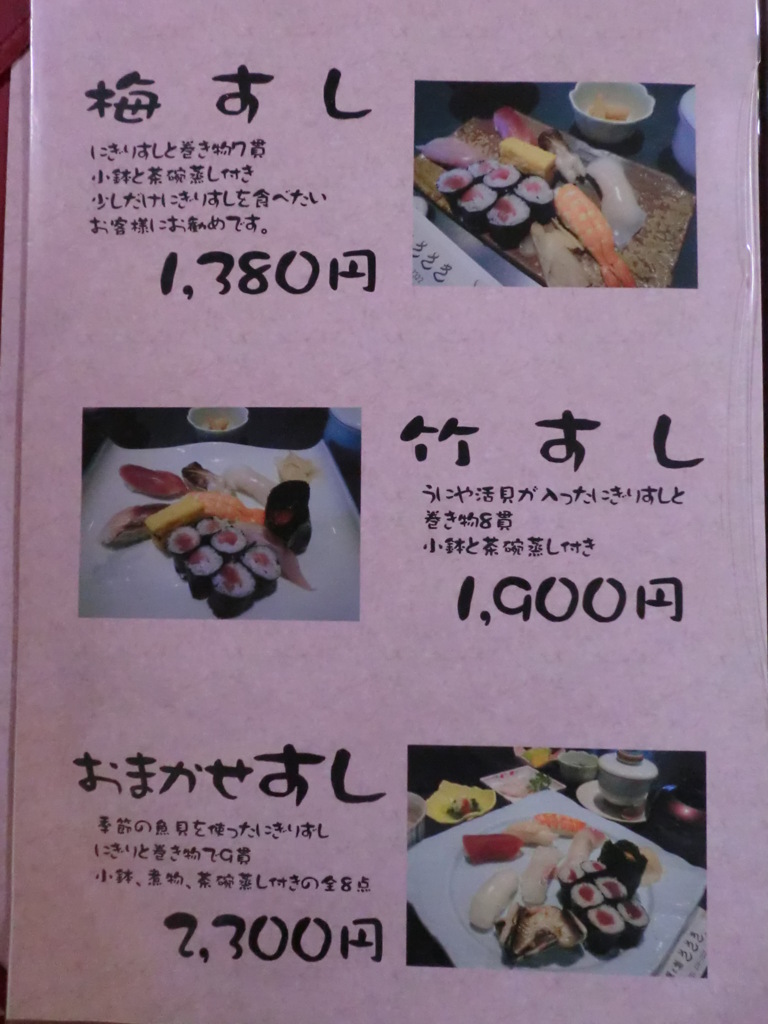 梅すし
にぎりすしと巻き物7貫
小鉢と茶碗蒸し付き
少しだけにぎりすしを食べたい
お客様にお勧めです。
1,380円
竹すし
うにや活貝が入ったにぎりすしと
巻き物8貫
小鉢と茶碗蒸し付き
1,900円
おまかせすし
季節の魚貝を使ったにぎりすし
にぎりと巻き物で9貫
小鉢、煮物、茶碗蒸し付きの全8点
2,300円